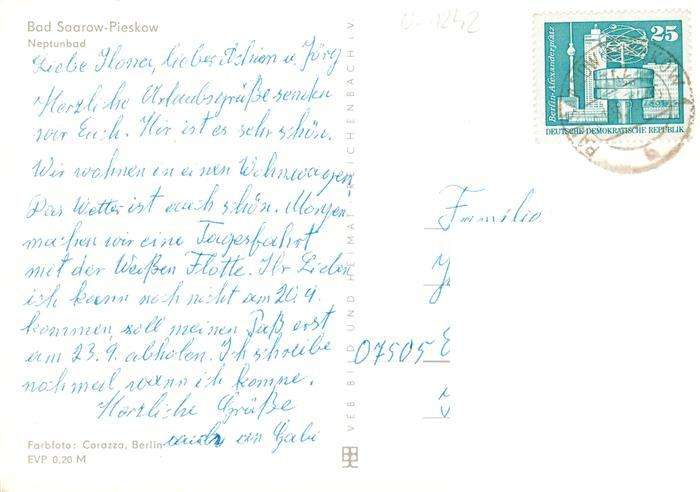 Bad Saarow-Pieskow
Neptunbad
Liebe Ilona, lieber Achim u. Jörg
Herzliche Urlaubsgrüße senden
wir Euch. Hir ist es sehr schön.
Wir wohnen in einen Wohnwagen
Das Wetter ist auch schön. Morgen
machen wir eine Tagesfahrt
mit der Weißen Flotte. Ihr Lieben
ich kann noch nicht am 20.9.
kommen, soll meinen Paß erst
am 23.9. abholen. Ich schreibe
nochmal, wann ich komme.
Herzliche Grüße
auch an Gabi
Farbfoto: Corazza, Berlin
EVP 0,20 M
VEB BILD UND HEIMAT REICHENBACH I. V.
1242
25
Berlin-Alexanderplatz
DEUTSCHE DEMOKRATISCHE REPUBLIK
Familie
07505 E